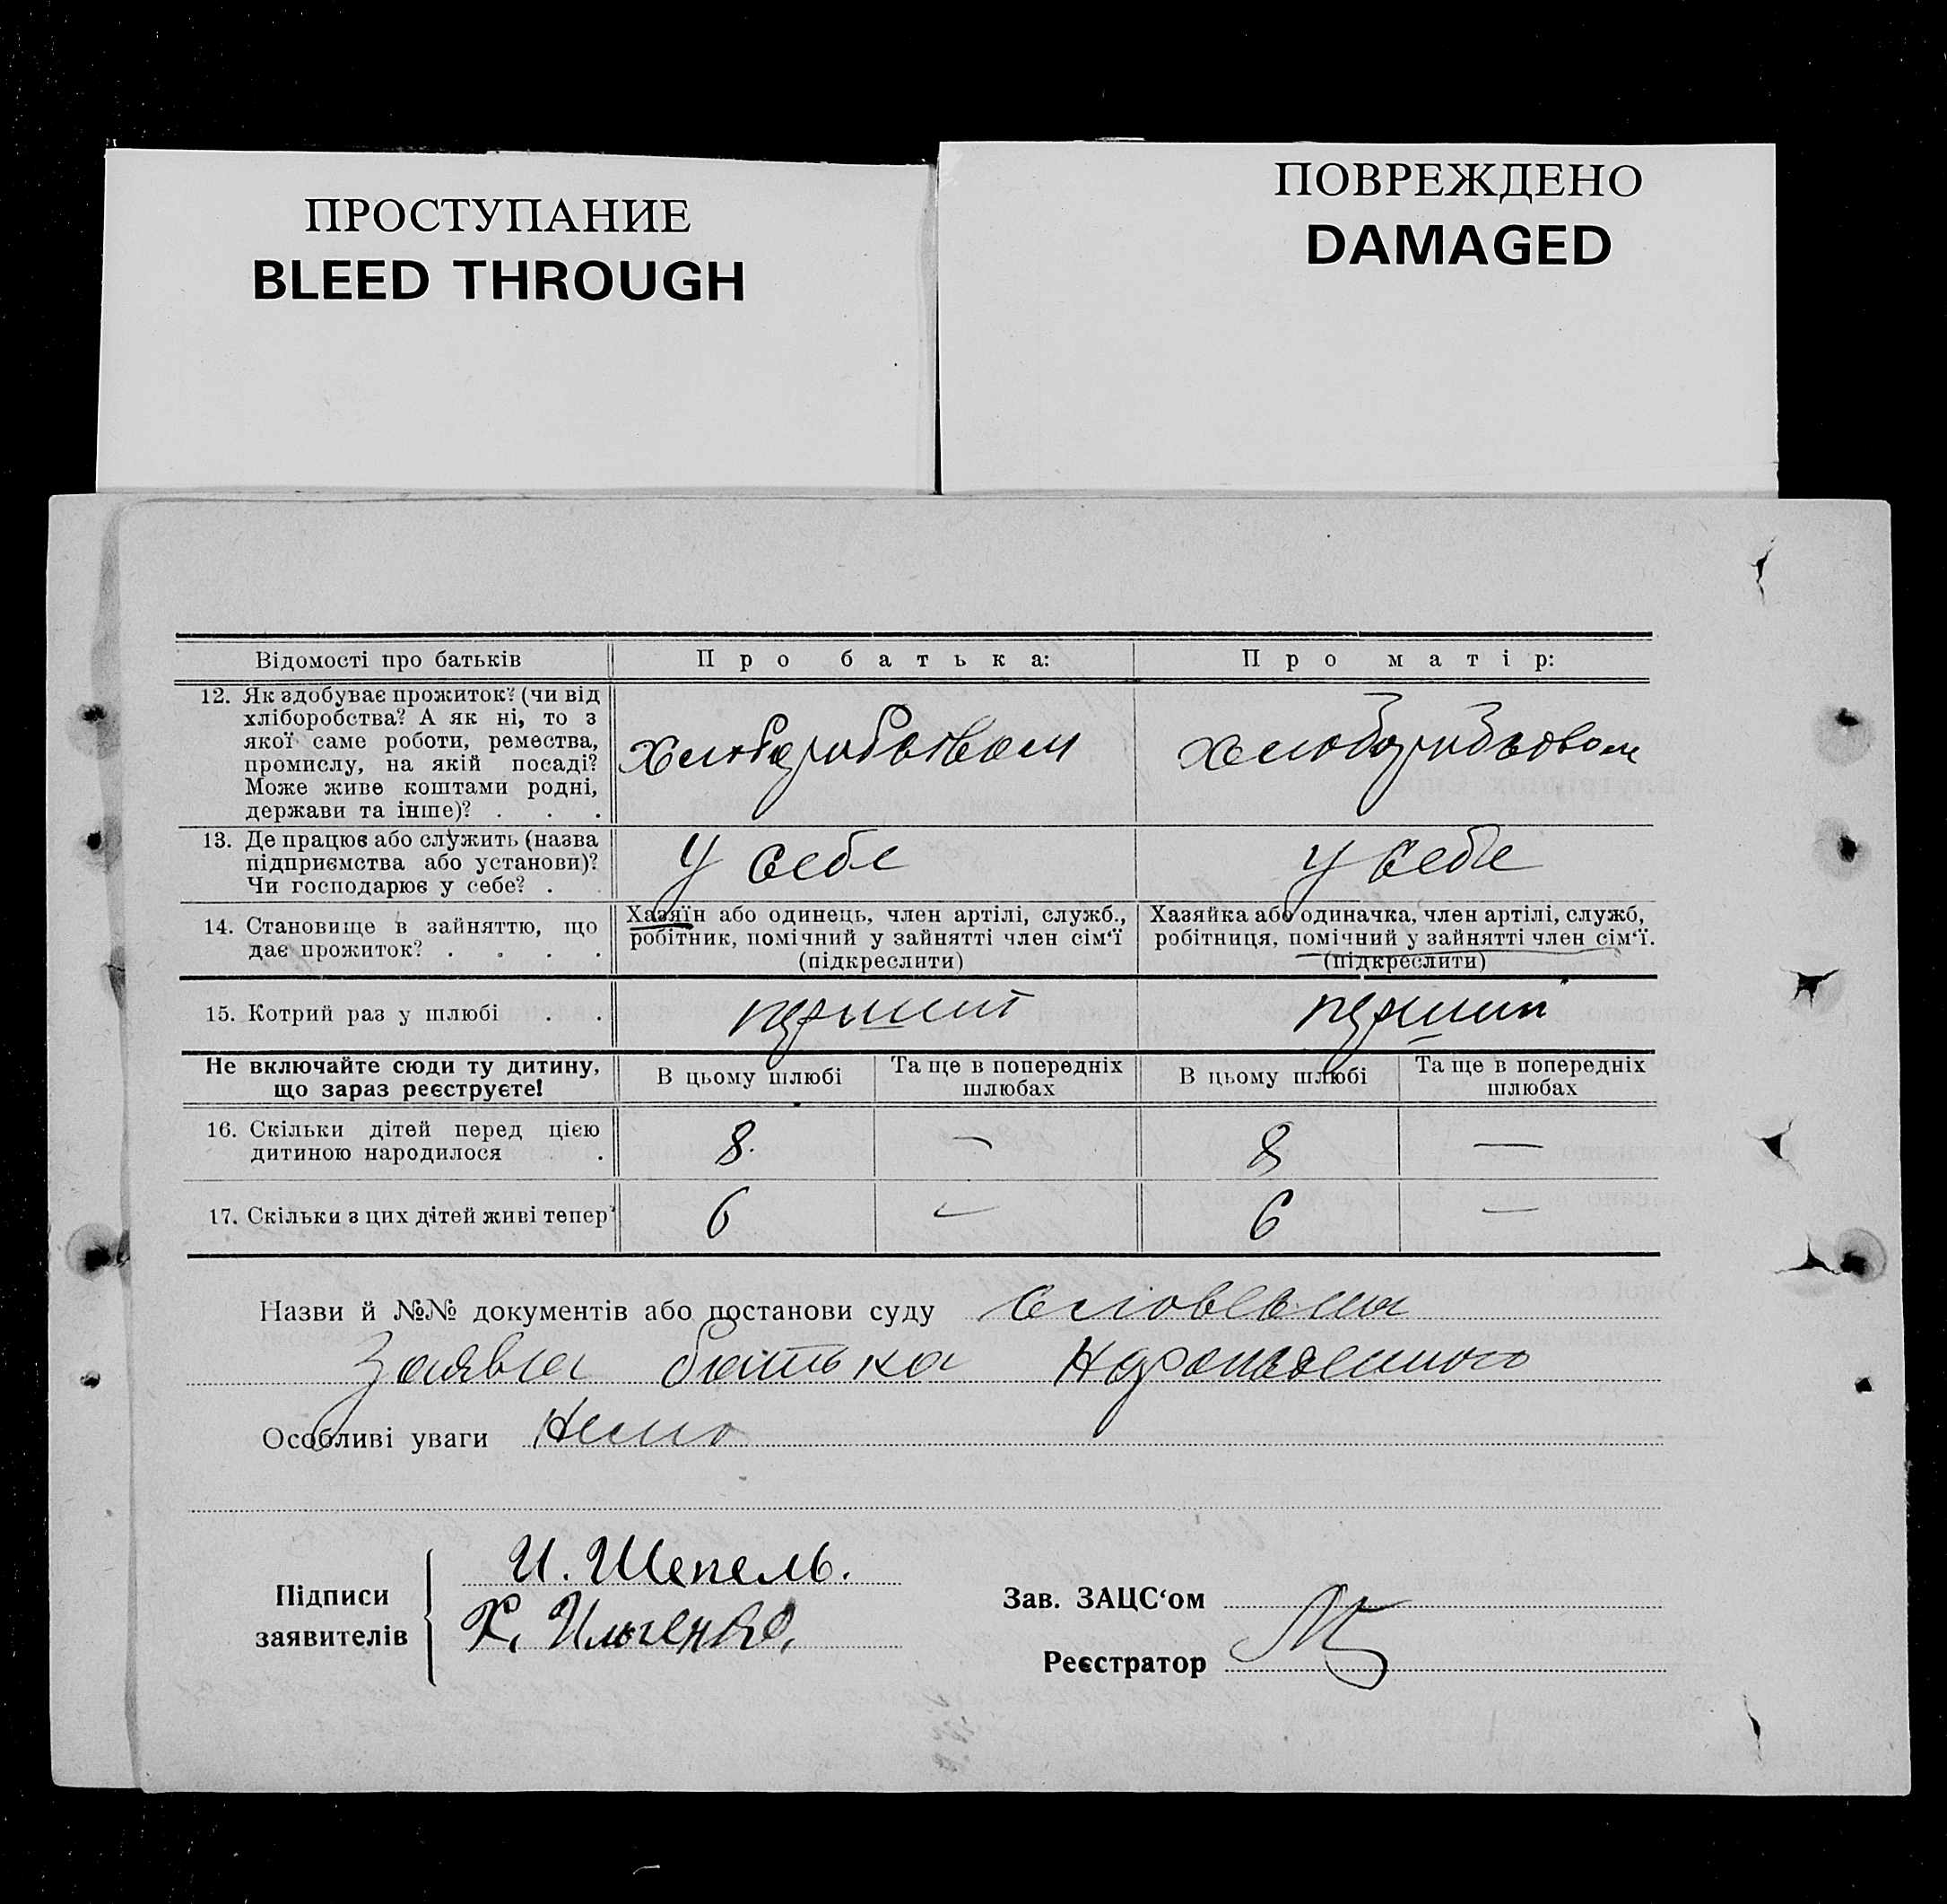 ПРОСТУПАНИЕ
BLEED THROUGH
ПОВРЕЖДЕНО
DAMAGED
Відомості про батьків
Про батька:
Про матір:
12. Як здобуває прожиток? (чи від
хліборобства? А як ні, то з
якої саме роботи, ремества,
промислу, на якій посаді?
Може живе коштами родні,
держави та інше)? . . .
13. Де працює або служить (назва
підприємства або установи)?
Чи господарює у себе? .
У себе
у себе
14. Становище в зайняттю, що
дає прожиток? . . . .
Хазяїн або одинець, член артілі, служб.,
робітник, помічний у зайнятті член сім'ї
(підкреслити)
Хазяйка або одиначка, член артілі, служб,
робітниця, помічний у зайнятті член сім'ї.
(підкреслити)
15. Котрий раз у шлюбі . .
перший
перший
Не включайте сюди ту дитину,
що зараз реєструєте!
В цьому шлюбі
Та ще в попередніх
шлюбах
В цьому шлюбі
Та ще в попередніх
шлюбах
16. Скільки дітей перед цією
дитиною народилося .
8. — 8 —
17. Скільки з цих дітей живі тепер
6 — 6 —
Назви й №№ документів або постанови суду
Заявка батька
Особливі уваги Нема
Підписи
заявителів
И. Шепель.
Х. Ильченко.
Зав. ЗАЦС'ом
Реєстратор